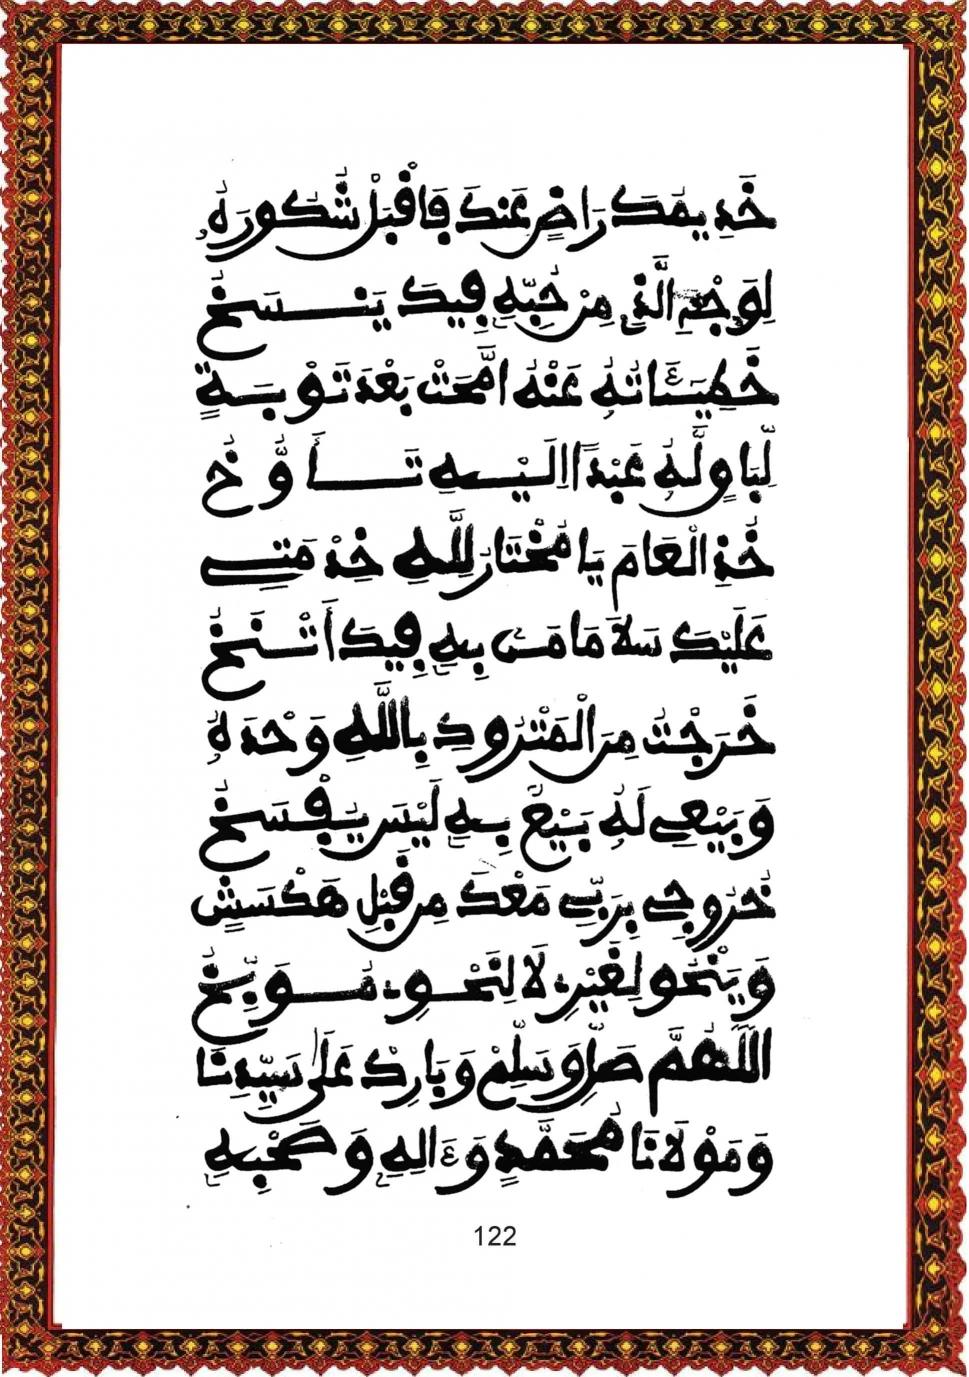 خَدِيمُكَ رَاضٍ عَنكَ فَاقْبَلْ شُكُورَهُ
لِوَجْهِ الَّذِي مِنْ حُبِّهِ فِيكَ يَنسَخُ
خَطِيئَاتُهُ عَنْهُ امَّحَتْ بَعْدَ تَوْبَةٍ
لِّبَاوٍ لَّهُ عَبْدًا الَيْهِ تَأَوُّخُ
خُذِ الْعَامَ يَا مُخْتَارُ لِلَّهِ خِدْمَتِي
عَلَيْكَ سَلَامَا مَن بِهِ فِيكَ أَتْنَخُ
خَرَجْتُ مِنَ الْمَتْرُوكِ بِاللَّهِ وَحْدَهُ
وَبَيْعِي لَهُ بَيْعٌ بِهِ لَيْسَ يُفْسَخُ
خُرُوجِي بِرَبِّي مَعْكَ مِن قَبْلِ هَكْسَشٍ
وَيَنْحُو لِغَيْرِي لَا لِنَحْوِي مُوَبِّخُ
اللَّهُمَّ صَلِّ وَسَلِّمْ وَبَارِكْ عَلَى سَيِّدِنَا
وَمَوْلَانَا مُحَمَّدٍ وَءَالِهِ وَصَحْبِهِ
122